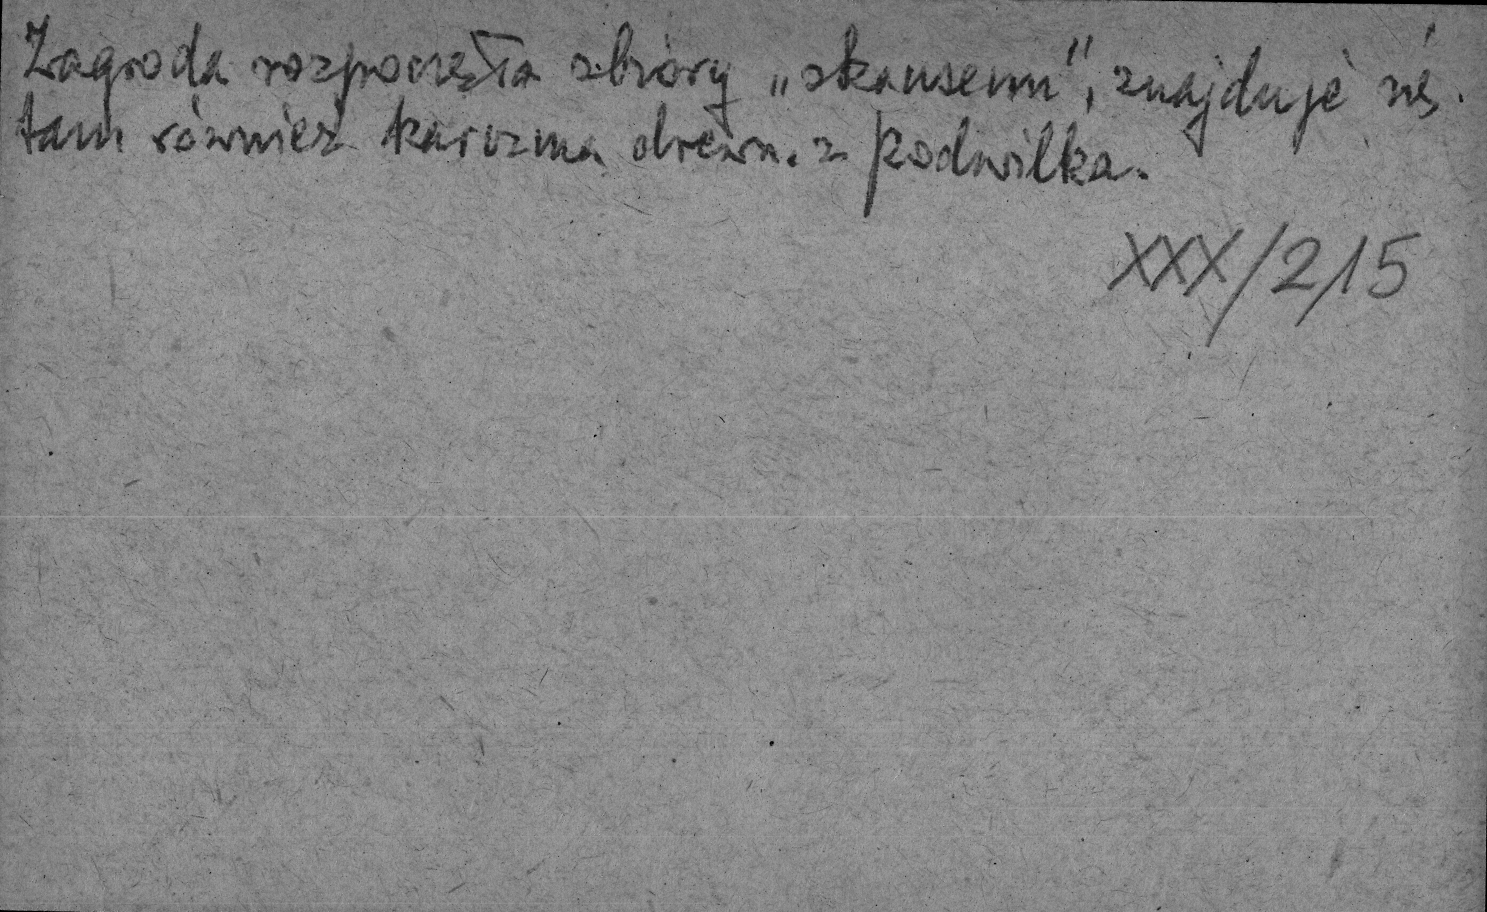 Zagroda rozpoczęła zbiory „skansenu", znajduje się
tam również karczma drewn. z Podwilka.
XXX/215